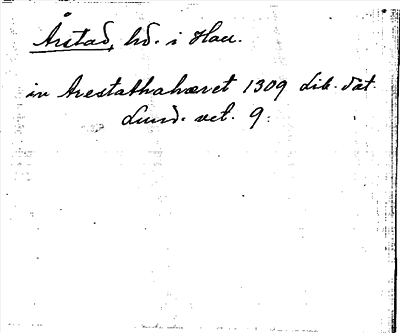 Årstad, hd. i Hall.
in Arestathahæret 1309 Lib. dat.
Lund. vet. 9.